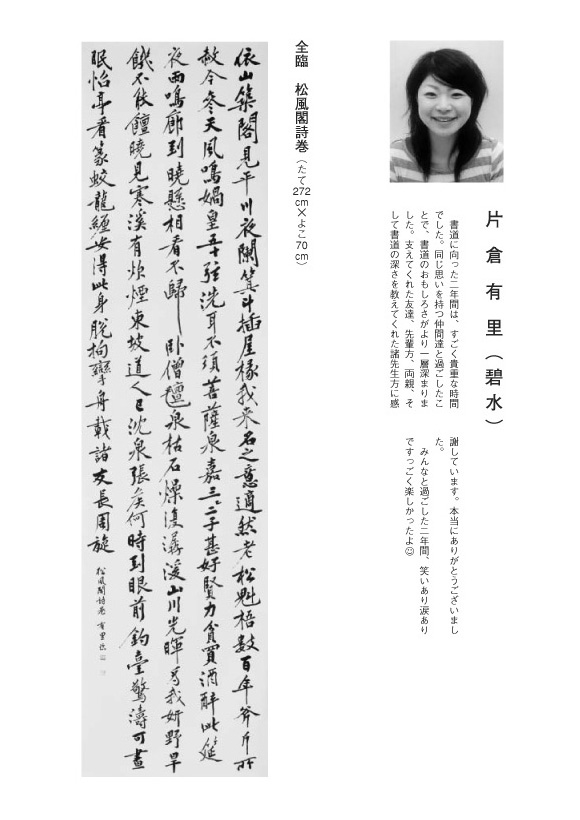 片倉有里（碧水）
　書道に向った二年間は、すごく貴重な時間
でした。同じ思いを持つ仲間達と過ごしたこ
とで、書道のおもしろさがより一層深まりま
した。支えてくれた友達、先輩方、両親、そ
して書道の深さを教えてくれた諸先生方に感
謝しています。本当にありがとうございまし
た。
　みんなと過ごした二年間、笑いあり涙あり
ですっごく楽しかったよ☺
全臨　松風閣詩巻（たて272cm×よこ70cm）
依山築閣見平川夜闌箕斗插屋椽我来名之意適然老松魁梧數百年斧斤所
赦今參天風鳴媧皇五十弦洗耳不須菩薩泉嘉三二子甚好賢力貧買酒醉此筵
夜雨鳴廊到曉懸相看不歸臥僧氊泉枯石燥復潺湲山川光暉爲我妍野旱
饑不能饘曉見寒溪有炊煙東坡道人已沈泉張侯何時到眼前釣臺驚濤可晝
眠怡亭看篆蛟龍纏安得此身脱拘攣舟載諸友長周旋
松風閣詩巻 有里臨